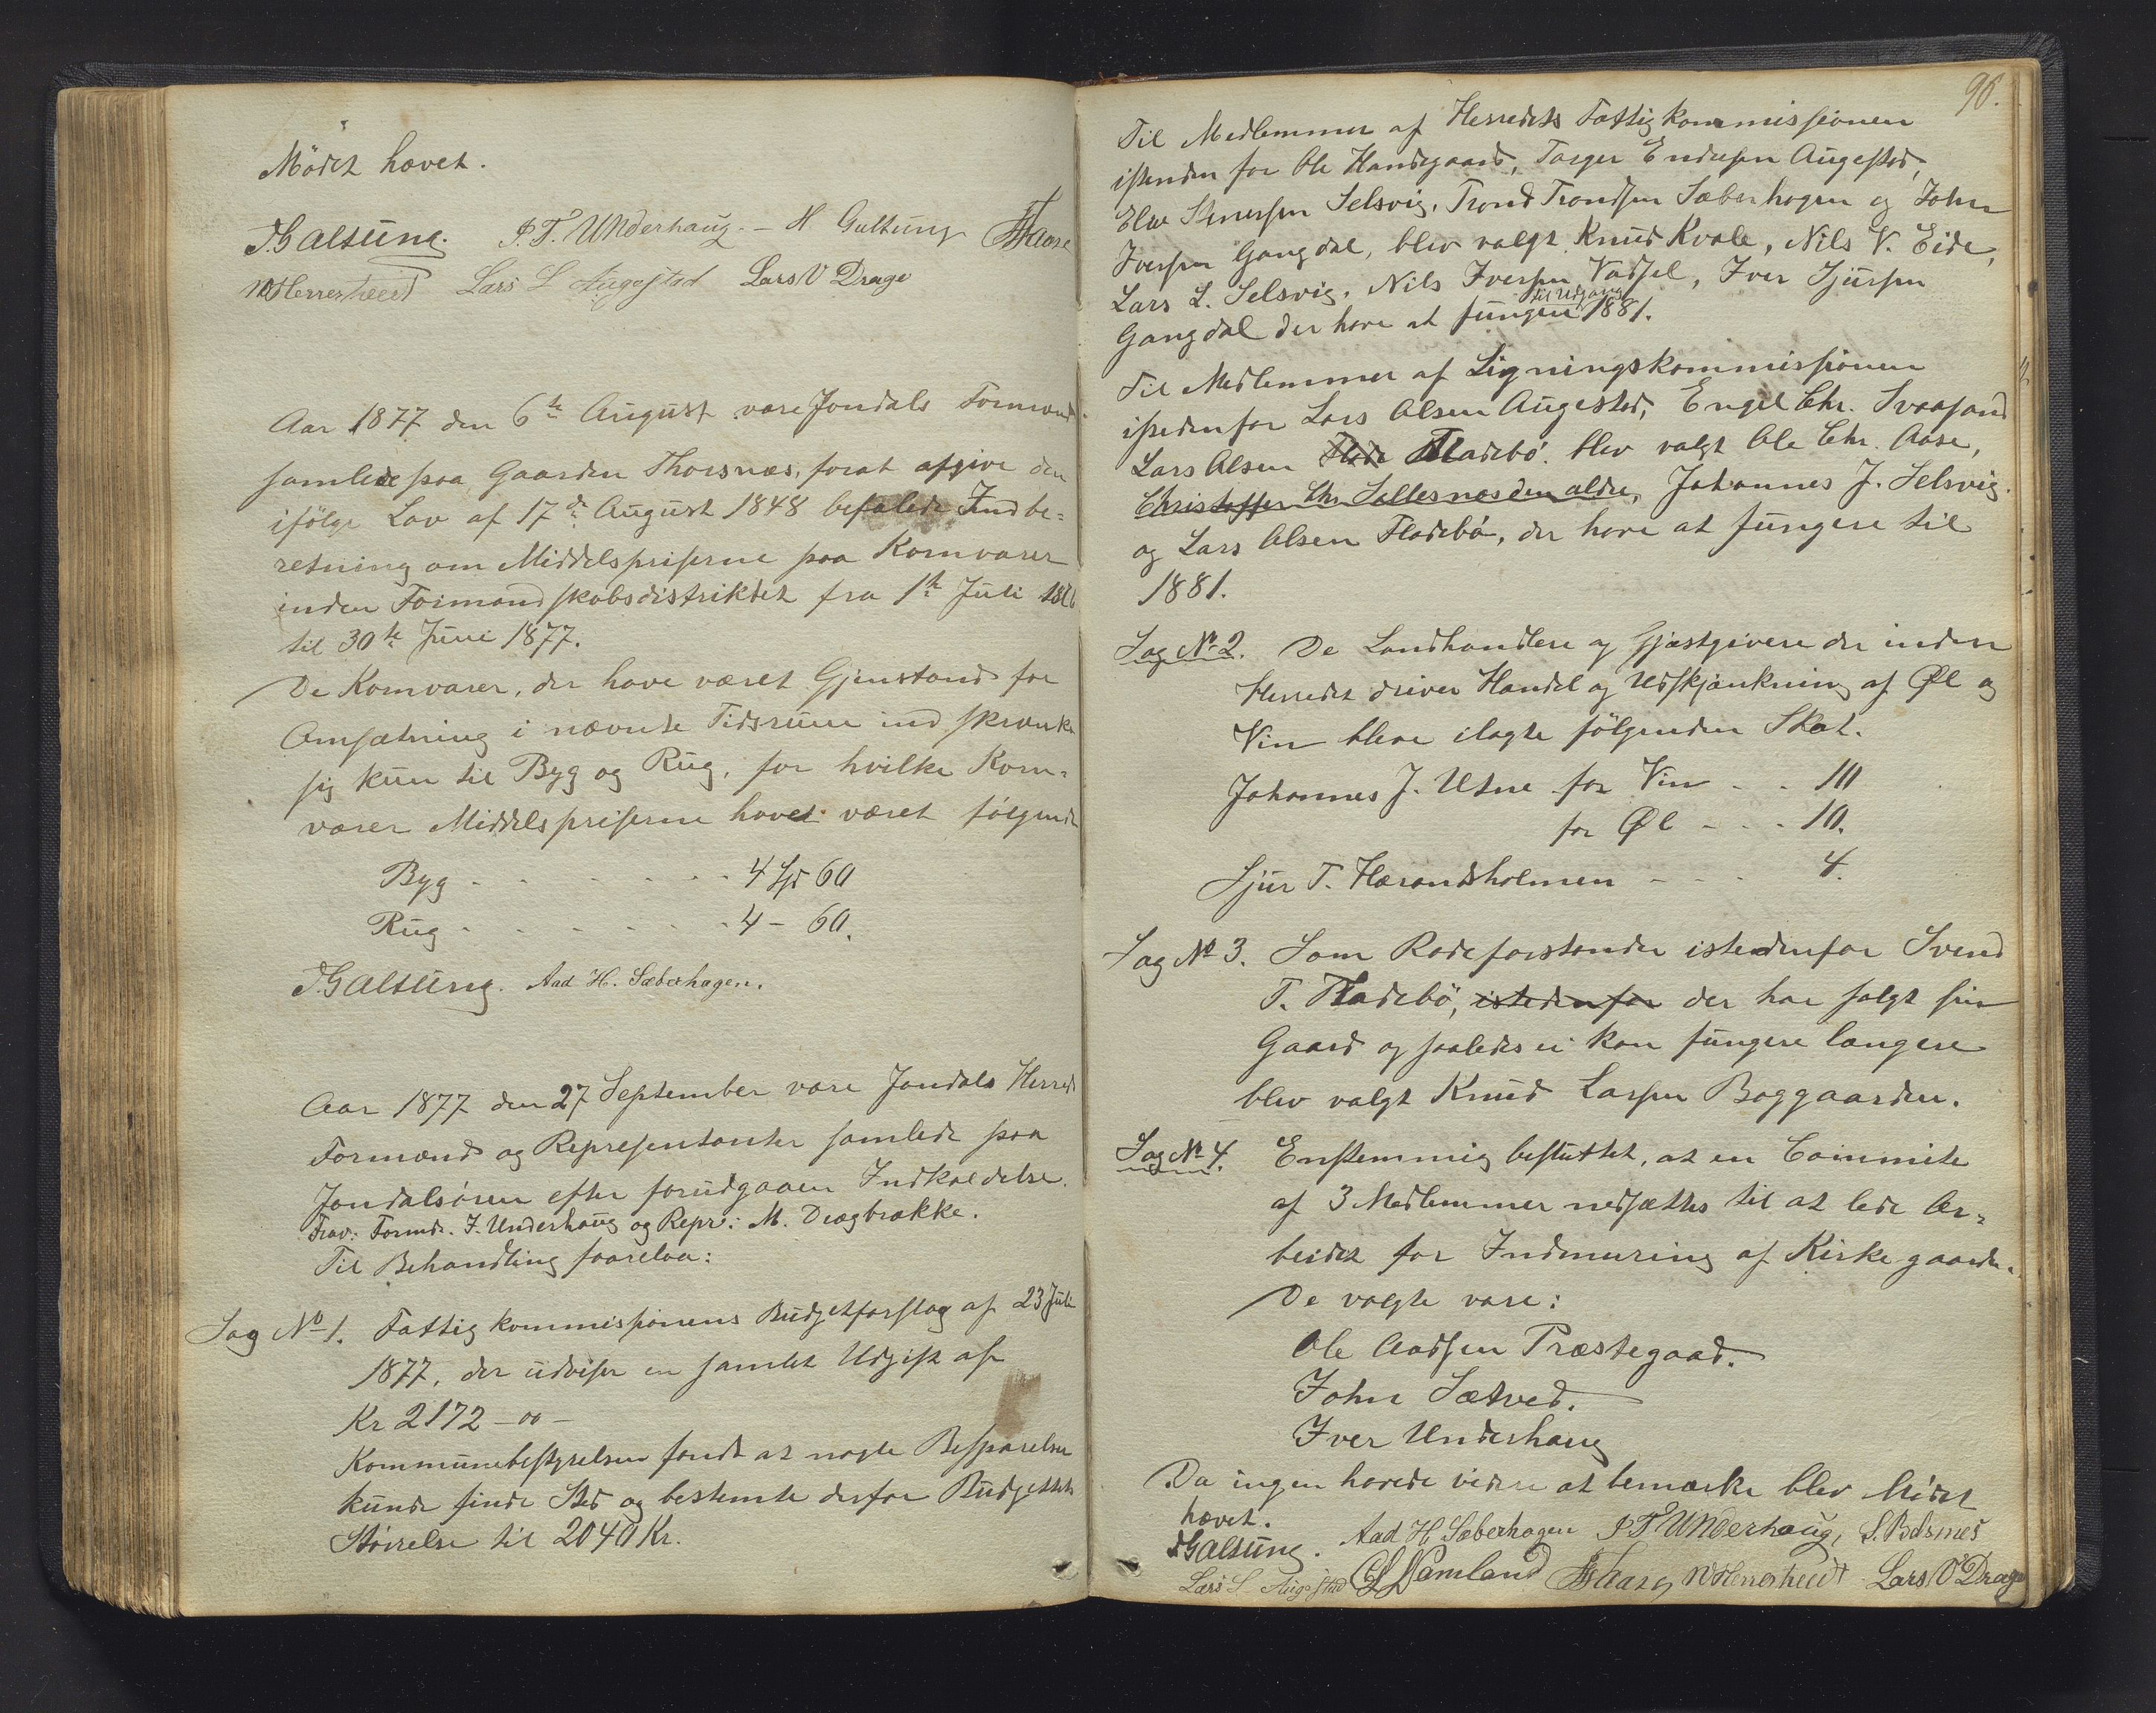 Mødet hævet.
J Galtung. I. T. Underhaug. – H Galtung
Herresheid Lars L Augestad Lars O Drage
Aar 1877 den 6te August vare Jondals Formænd
samlede paa Gaarden Thorsnæs, forat afgive den
ifölge Lov af 17de August 1848 befalede Indbe=
retning om Middelspriserne paa Kornvarer
inden Formandskabsdistriktet fra 1te Juli 1876
til 30te Juni 1877.
De Kornvarer, der have været Gjenstand for
Omsætning i nævnte Tidsrum indskrænke
sig kun til Byg og Rug, for hvilke Korn=
varer Middelspriserne havet været følgende
Byg - - - - - - - 4 60
Rug - - - - - - - 4 – 60.
J. Galtung. Aad H. Sæberhagen.
Aar 1877 den 27 September vare Jondals Herreds
Formænd og Repræsentanter samlede paa
Jondalsøren efter forudgaaen Indkaldelse.
Frav: Formd. I. Underhaug og Repr: M. Drægbrække.
Til Behandling foarelaa:
Sag No 1. Fattigkommissionens Budgetforslag af 23 Juli
1877, der udviser en samlet Udgift af
Kr 2172 – 00 –
Kommunebestyrelsen fandt at nogle Besparelser
kunde finde Sted og bestemte derfor Budgettets
Størrelse til 2040 Kr.
98.
Til Medlemmer af Herredets Fattigkommissionen
istenden for Ole Handegaard, Torger Endresen Augestad,
Elw Stenersen Selsvig, Trond Trondsen Sæberhagen og John
Iversen Gangdal, blev valgt Knud Kvale, Nils V. Eide,
Lars L. Selsvig, Nils Iversen Vadsel, Iver Sjursen
til Udgang
Gangdal der have at fungere 1881.
Til Medlemmer af Ligningskommissionen
istedenfor Lars Olsen Augestad, Engel Chr. Svaasand
Lars Olsen Flade Fladebö. blev valgt Ole Chr. Aase,
Christoffer Chr. Sollesnes den ældre, Johannes J. Selsvig.
og Lars Olsen Fladebö, der have at fungere til
1881.
Sag No 2. De Landhandlere og Gjæstgivere der inden
Herredet driver Handel og Udskjænkning af Øl og
Vin bleve ilagte følgenden Skat.
Johannes J. Utne for Vin - - 10
for Øl - - - 10.
Sjur T. Herandsholmen - - - 4.
Sag No 3. Som Rodeforstander istedenfor Svend
T. Fladebö, istedenfor der har solgt sin
Gaard og saaledes ei kan fungere længere
blev valgt Knud Larsen Boggaarden.
Sag No 4. Enstemmig besluttet, at en Commite
af 3 Medlemmer nedsættes til at lede Ar=
beidet for Indmuring af Kirkegaarden.
De valgte vare:
Ole Aadsen Præstegaad.
John Sætved.
Iver Underhaug
Da ingen havde videre at bemærke blev Mödet
hævet.
J Galtung. Aad H Sæberhagen I T Underhaug,
Lars L Augestad Samland Herresheidt Lars O Drage